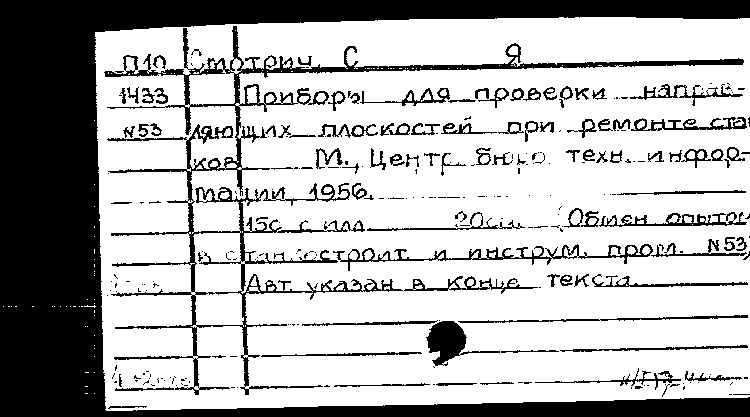 П10 Смотрич, С Я
1433 Приборы для проверки направ-
N53 ляющих плоскостей при ремонте стан
ков М., Центр. бюро техн. инфор-
мации, 1956.
15с с илл. 20см. (Обмен опытом
в станкостроит и инструм. пром. N53)
Авт указан в конце текста.